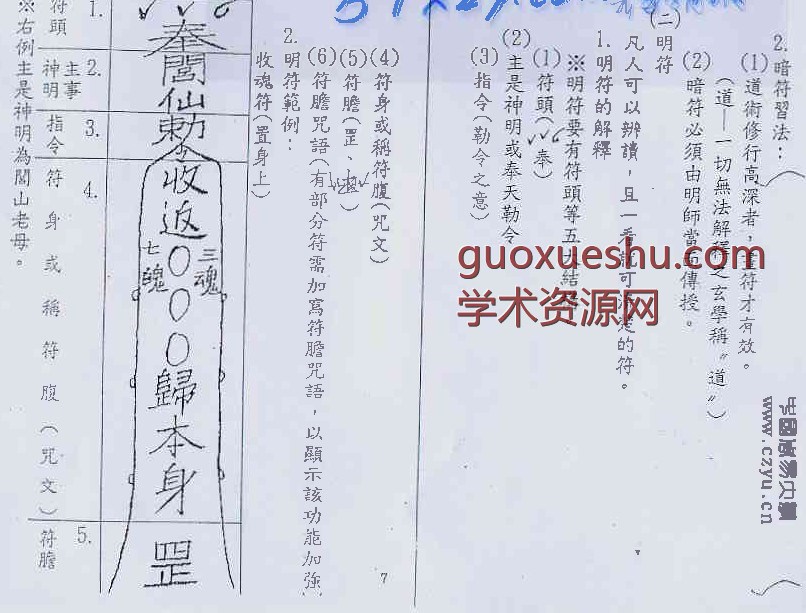 2. 暗符習法：
(1) 道術修行高深者，畫符才有效。
(道—一切無法解釋之玄學稱〝道〞)
(2) 暗符必須由明師當面傳授。
(二) 明符
凡人可以辨讀，且一看就可清楚的符。
1. 明符的解釋
※明符要有符頭等五大結構
(1) 符頭(✓✓✓奉)
(2) 主是神明或奉天勅令
(3) 指令(勒令之意)
(4) 符身或稱符腹(咒文)
(5) 符膽(罡、)
(6) 符膽咒語(有部分符需加寫符膽咒語，以顯示該功能加強)
2. 明符範例：
收魂符(置身上)
奉閭仙勅令收返○○○歸本身罡
三魂
七魄
1. 符頭
2. 主事神明
3. 指令
4. 符身或稱符腹(咒文)
5. 符膽
※右例主是神明為閭山老母。
7
guoxueshu.com
学术资源网
www.czyu.cn